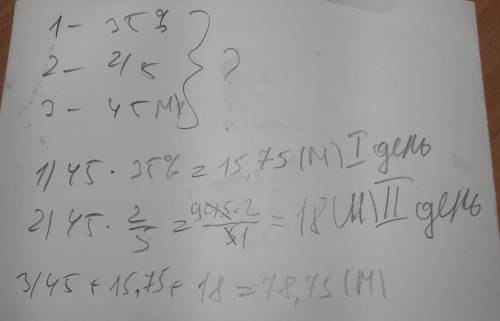 1 – 35%
2 – 2/5
3 – 45 м } ?
1) 45 · 35% = 15,75 (м) I день
2) 45 · 2/5 = 9 45 · 2 / 5 1 = 18 (м) II день
3) 45 + 15,75 + 18 = 78,75 (м)